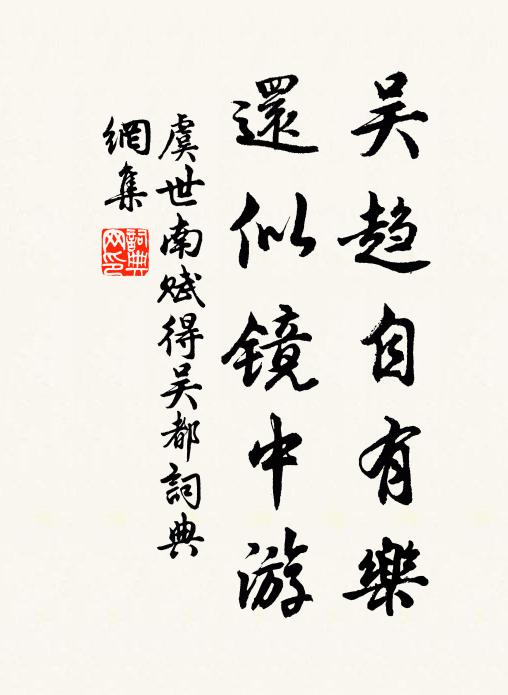 吴趋自有樂
還似镜中游
虞世南赋得吴都詞典
網集
詞典
网印